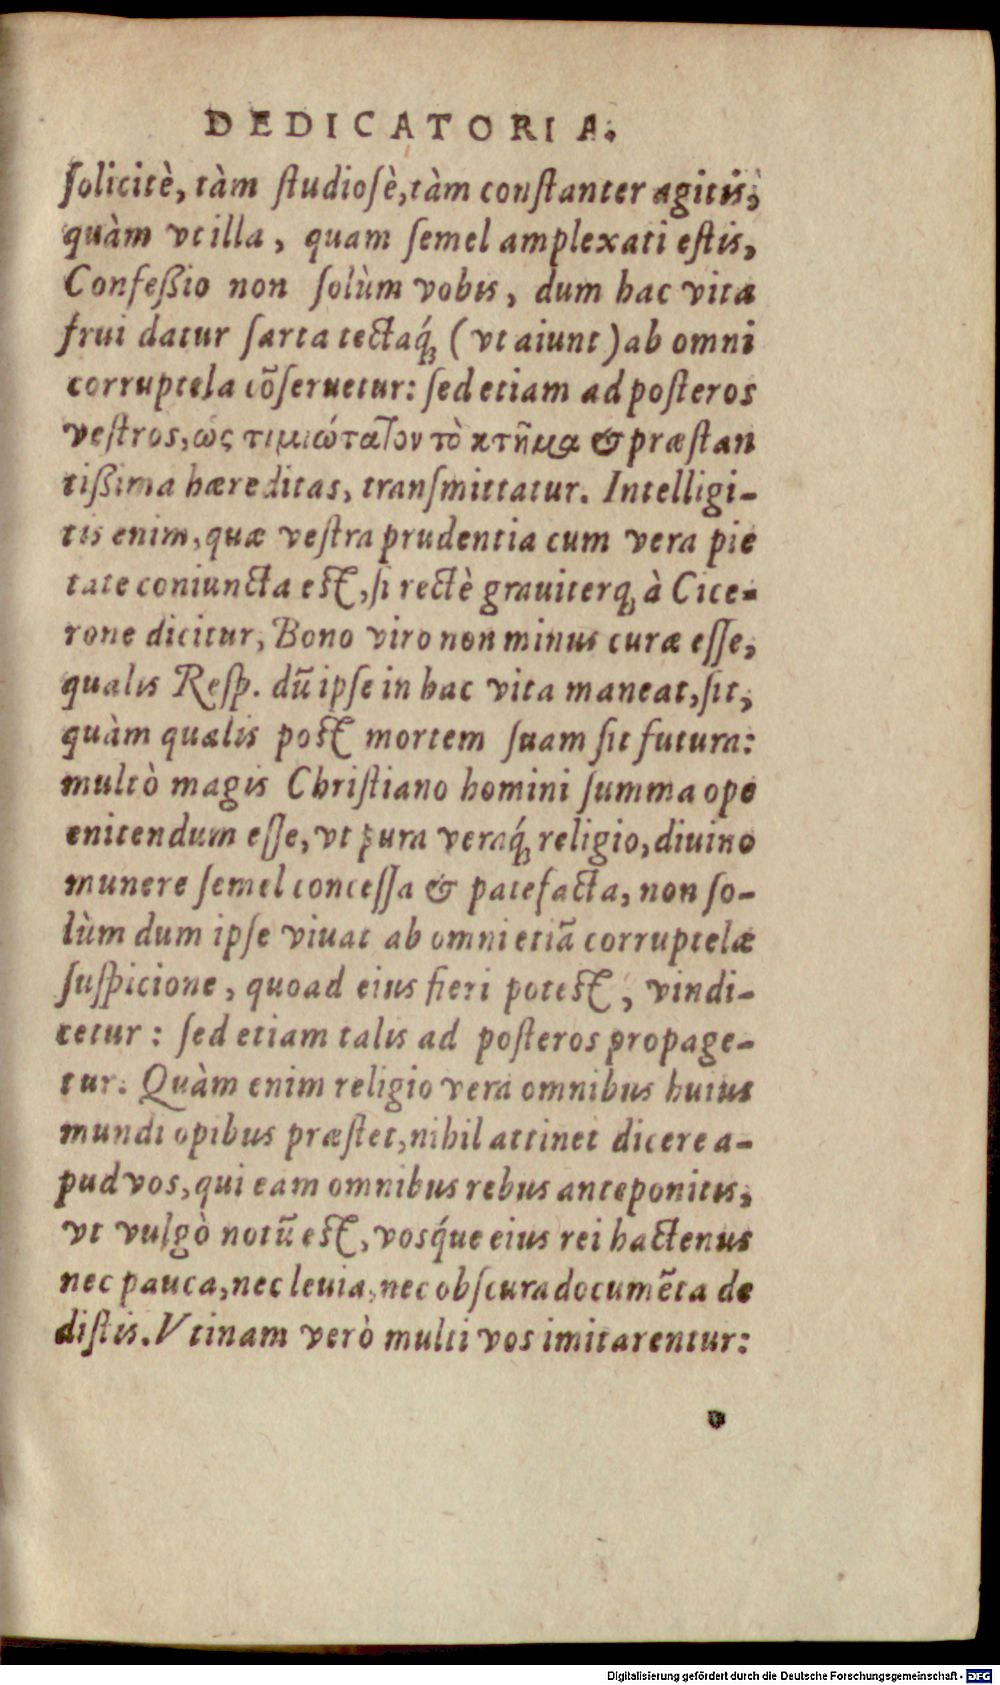 DEDICATORIA.
ſolicitè, tàm ſtudioſè, tàm conſtanter agitis,
quàm vt illa, quam ſemel amplexati eſtis,
Confeßio non ſolùm vobis, dum hac vita
frui datur ſarta tectaq́ꝫ (vt aiunt) ab omni
corruptela cōſeruetur: ſed etiam ad poſteros
veſtros, ὡς τιμιώτατον τὸ κτῆμα & præſtan
tißima hæreditas, tranſmittatur. Intelligi-
tis enim, quæ veſtra prudentia cum vera pie
tate coniuncta eſt, ſi rectè grauiterqꝫ à Cice-
rone dicitur, Bono viro non minus curæ eſſe,
qualis Reſp. dū ipſe in hac vita maneat, ſit,
quàm qualis poſt mortem ſuam ſit futura:
multò magis Chriſtiano homini ſumma ope
enitendum eſſe, vt pura veraq́ꝫ religio, diuino
munere ſemel conceſſa & patefacta, non ſo-
lùm dum ipſe viuat ab omni etiã corruptelæ
ſuſpicione, quoad eius fieri poteſt, vindi-
cetur: ſed etiam talis ad poſteros propage-
tur. Quàm enim religio vera omnibus huius
mundi opibus præſtet, nihil attinet dicere a-
pud vos, qui eam omnibus rebus anteponitis,
vt vulgò notū eſt, vosq́ue eius rei hactenus
nec pauca, nec leuia, nec obſcura documēta de
diſtis. Vtinam verò multi vos imitarentur:
Digitalisierung gefördert durch die Deutsche Forschungsgemeinschaft - DFG